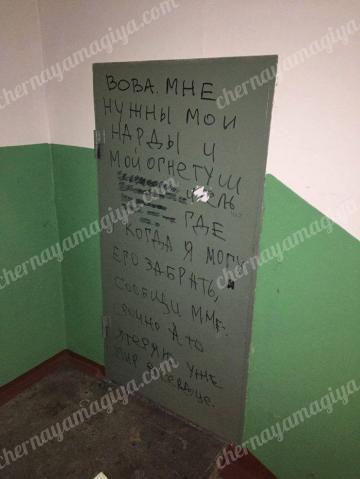 ВОВА. МНЕ
НУЖНЫ МОИ
НАРДЫ И
МОЙ ОГНЕТУШ
ИТЕЛЬ
ГДЕ
КОГДА Я МОГУ
ЕГО ЗАБРАТЬ,
СООБЩИ МНЕ.
СРОЧНО А ТО
Я ТЕРЯЮ УЖЕ
МИР В СЕРДЦЕ.
chernayamagiya.com
chernayamagiya.com
chernayamagiya.com
chernayamagiya.com
chernayamagiya.com
chernayamagiya.com
chernayamagiya.com
chernayamagiya.com